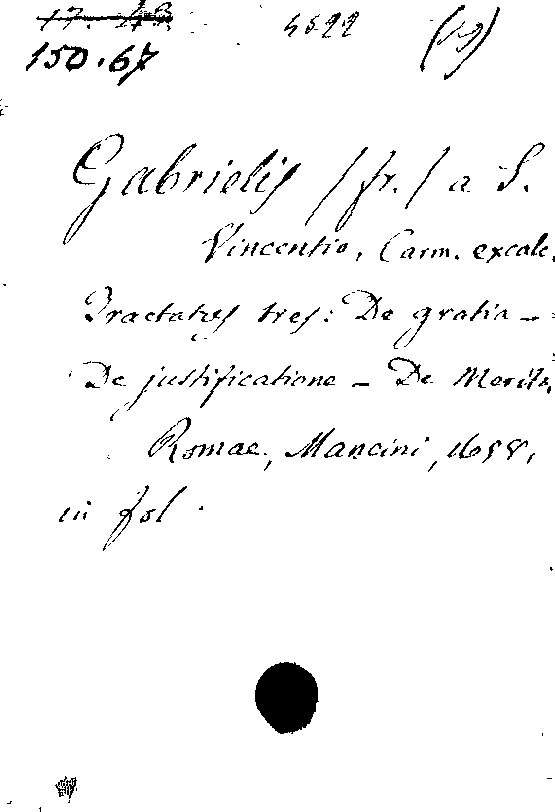 17. 43 4522 (19)
150.67
Gabrielis /fr./ a S.
Vincentio, Carm. excale.
Tractatus tres: De gratia -
De justificatione - De Merito.
Romae, Mancini, 1658,
in fol.